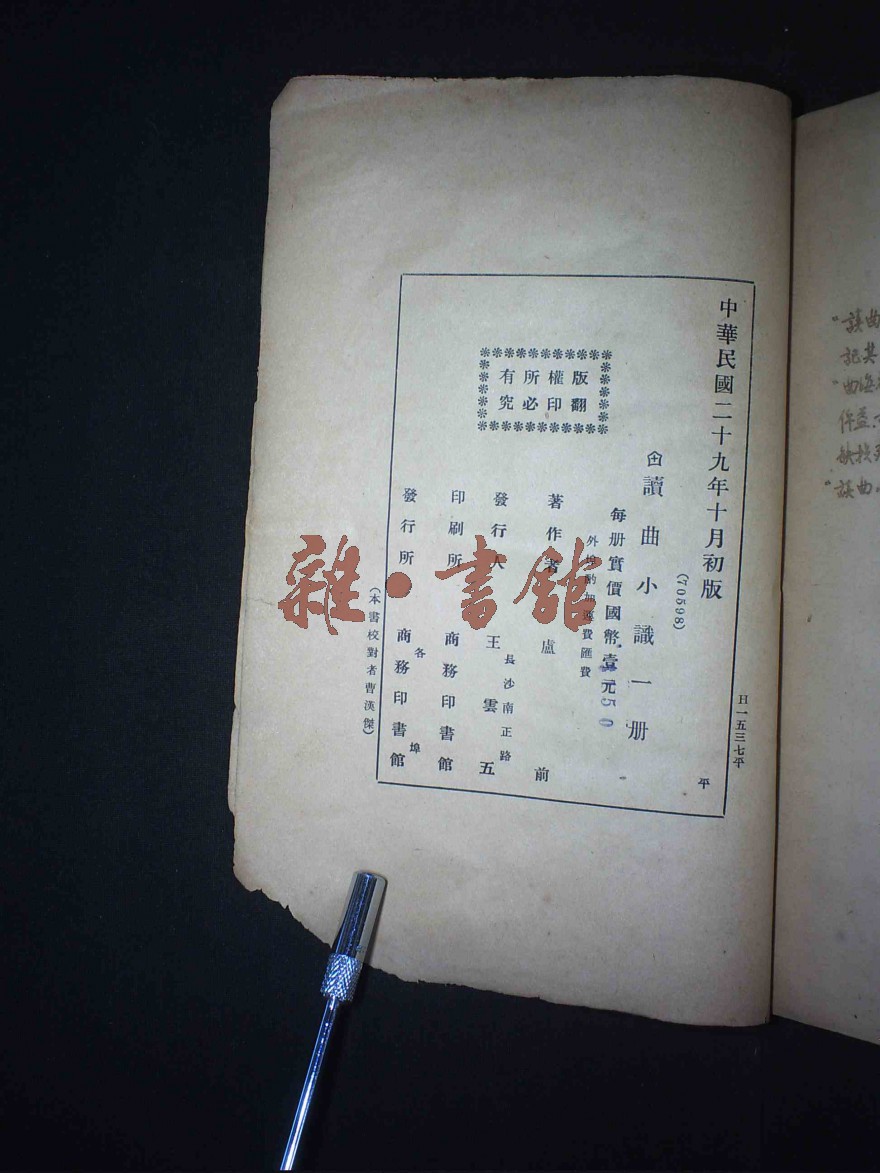 中華民國二十九年十月初版
(70598)
讀曲小識一册
每册實價國幣壹元50
外埠酌加運費匯費
著作者 盧前
發行人 王雲五
長沙南正路
印刷所 商務印書館
發行所 商務印書館
各埠
(本書校對者曹漢傑)
版權所有
翻印必究
日一五三七平
平
雜·書館
"讀曲
記其
"曲海
"讀曲